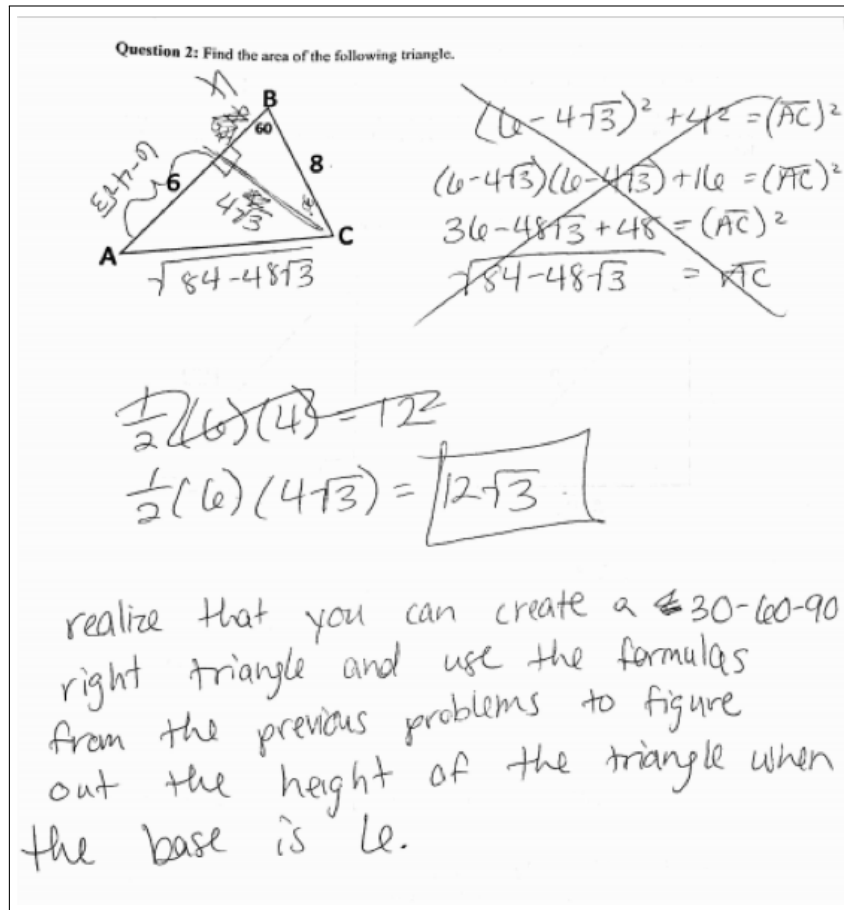 Question 2: Find the area of the following triangle.
4
B
60
6-4√3
6
8
4√3
A
C
√84-48√3
(6-4√3)² + 4² = (AC)²
(6-4√3)(6-4√3) + 16 = (AC)²
36-48√3 + 48 = (AC)²
√84-48√3 = AC
1/2 (6)(4) = 12²
1/2 (6)(4√3) = 12√3
realize that you can create a 30-60-90
right triangle and use the formulas
from the previous problems to figure
out the height of the triangle when
the base is 6.